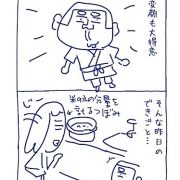 変顔も大得意
そんな昨日の
できごと…
米の水の分量を
るつぼみ